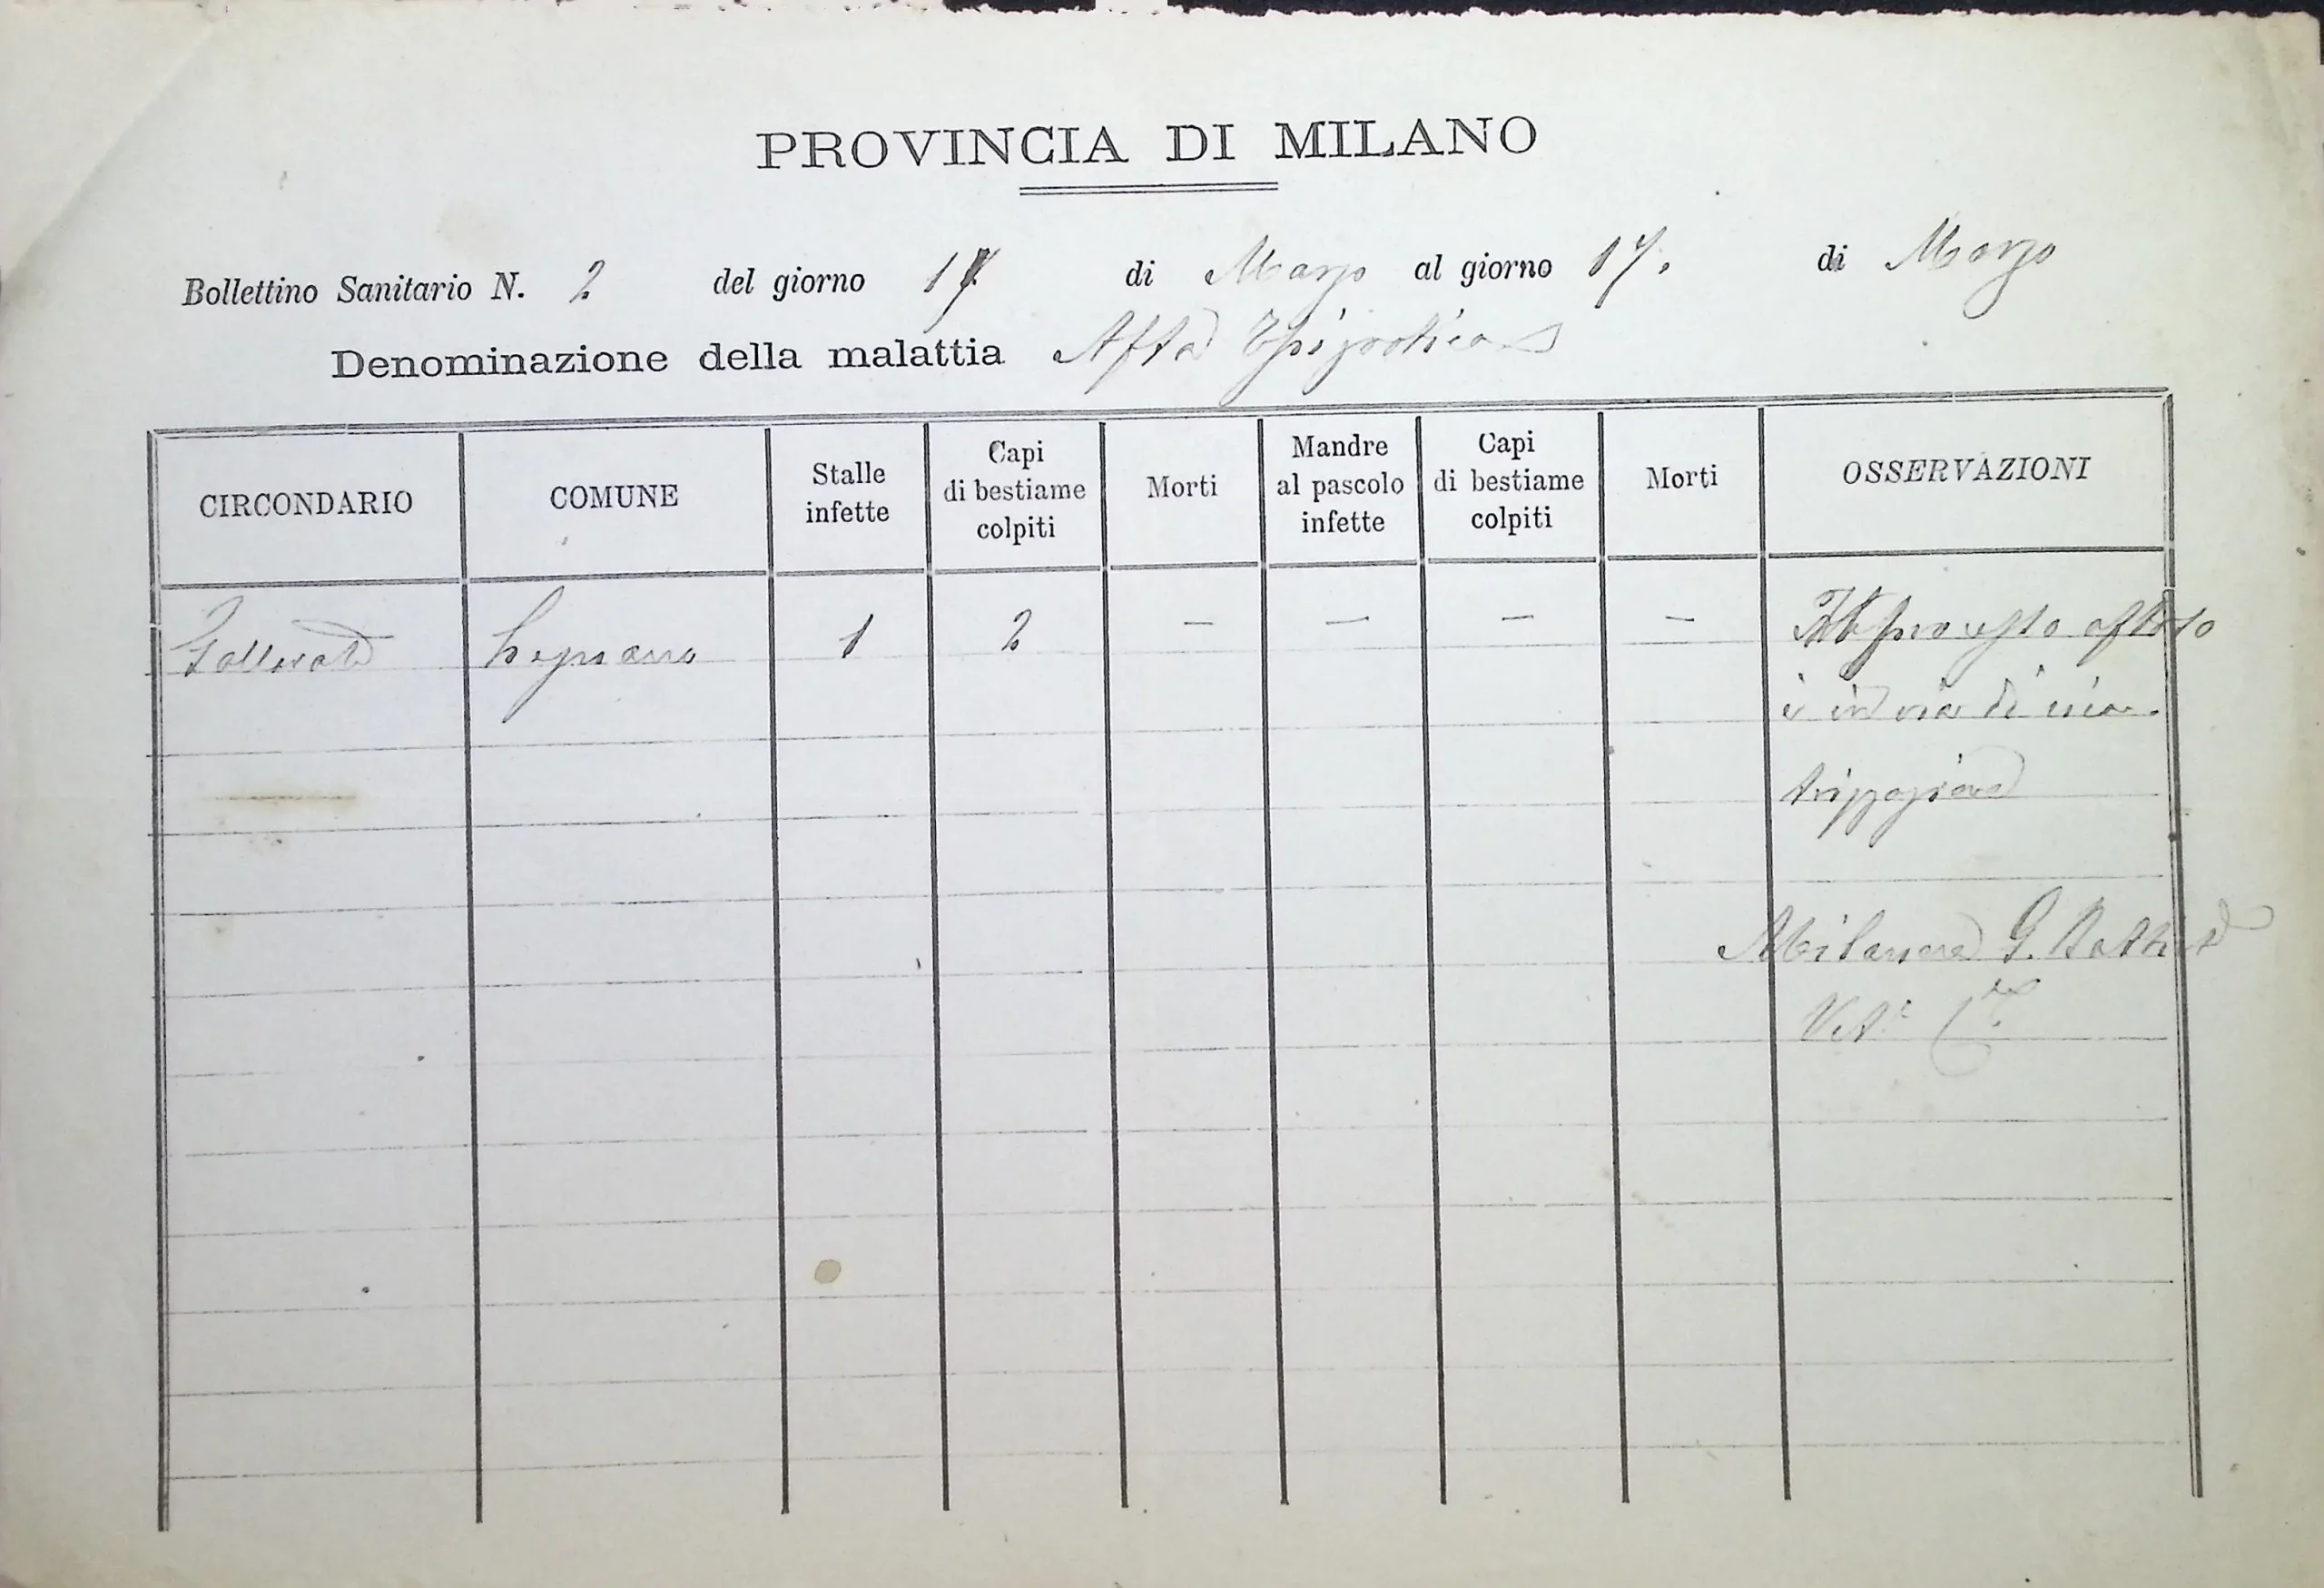 PROVINCIA DI MILANO
Bollettino Sanitario N. 2 del giorno 17 di Marzo al giorno 17. di Marzo
Denominazione della malattia Afta Epizotica
CIRCONDARIO COMUNE Stalle infette Capi di bestiame colpiti Morti Mandre al pascolo infette Capi di bestiame colpiti Morti OSSERVAZIONI
Gallarate Legnano 1 2 — — — — Il processo aftoso
è in via di cica-
trizzazione
Milanese G. Battista
Vet.